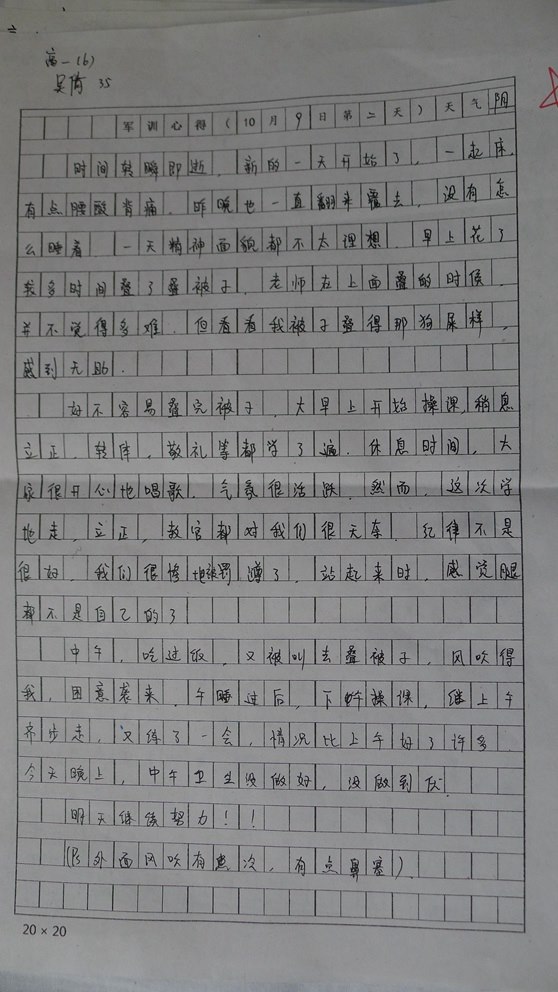 高一(6)
吴倚 35
军训心得(10月9日第二天)天气阴
时间转瞬即逝,新的一天开始了,一起床,
有点腰酸背痛,昨晚也一直翻来覆去,没有怎
么睡着,一天精神面貌都不太理想.早上花了
我多时间叠了叠被子,老师在上面叠的时候,
并不觉得多难.但看看我被子叠得那狗屎样,
感到无助.
好不容易叠完被子,大早上开始操课,稍息
立正,转体,敬礼等都学了遍.休息时间,大
家很开心地唱歌,气氛很活跃.然而,这次学
地走,立正,教官都对我们很无奈.纪律不是
很好,我们很惨地被罚蹲了,站起来时,感觉腿
都不是自己的了
中午,吃过饭,又被叫去叠被子,风吹得
我,困意袭来.午睡过后,下午操课,继上午
齐步走,又练了一会,情况比上午好了许多
今天晚上,中午卫生没做好,没做到位.
明天继续努力!!
(Ps外面风吹有点冷,有点鼻塞)
20×20